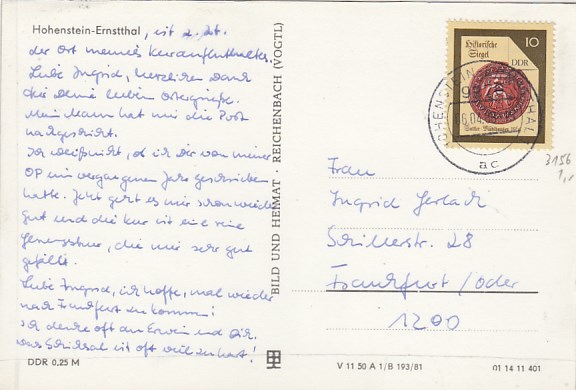 Hohenstein-Ernstthal, ist z. Zt.
der Ort meines Kuraufenthaltes.
Liebe Ingrid, herzlichen Dank
für Deine lieben Ostergrüße.
Mein Mann hat mir die Post
nachgeschickt.
Ich weiß nicht, ob ich Dir von meiner
OP im vergangenen Jahr geschrieben
hatte. Jetzt geht es mir schon wieder
gut und die Kur ist eine reine
Genesungskur, die mir sehr gut
gefällt.
Liebe Ingrid, ich hoffe, mal wieder
nach Frankfurt zu kommen!
Ich denke oft an Erwin und Dich.
Das Schicksal ist oft viel zu hart!
DDR 0,25 M
BILD UND HEIMAT · REICHENBACH (VOGTL)
Historische
Siegel
10
DDR
HOHENSTEIN
06.04
ac
3156
1,-
Frau
Ingrid Gerlach
Schillerstr. 28
Frankfurt/Oder
1200
V 11 50 A 1/B 193/81
01 14 11 401